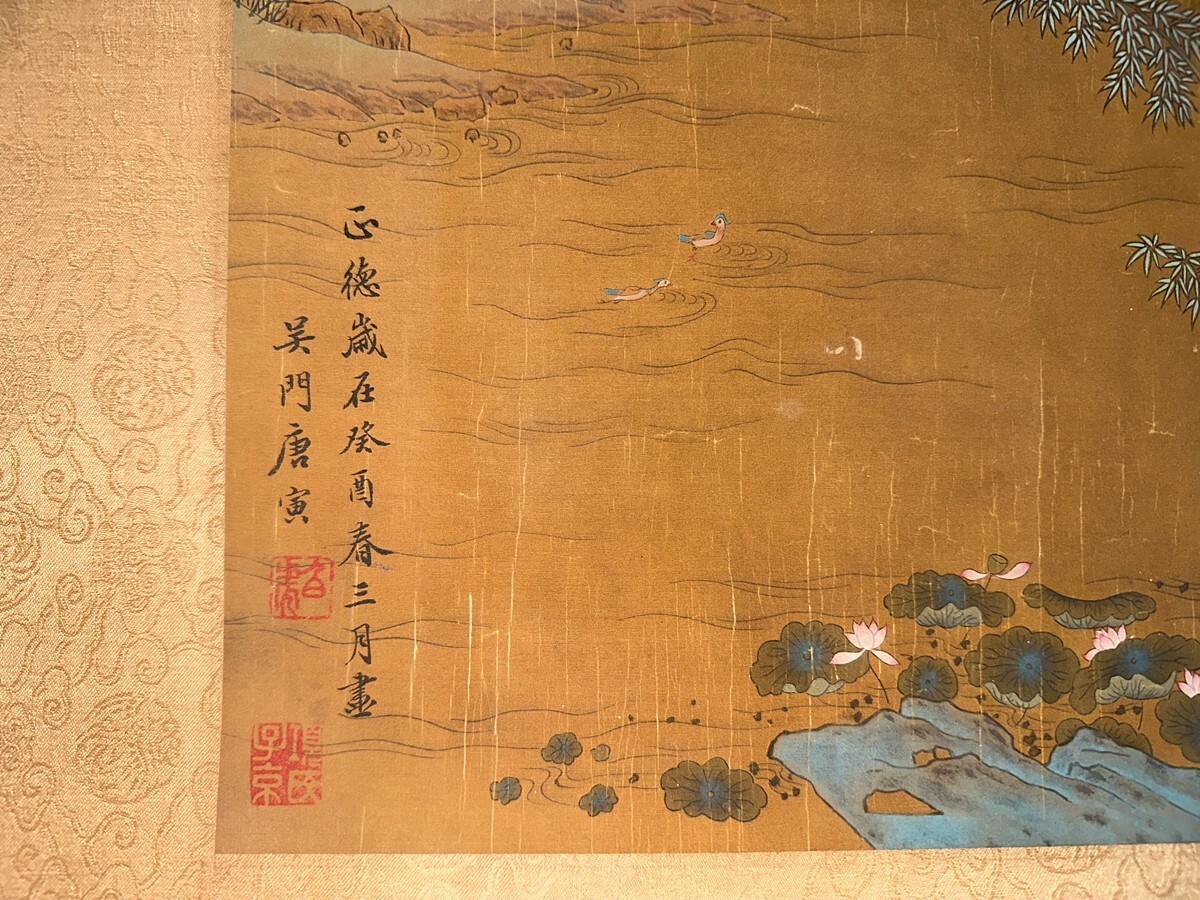 正德歲在癸酉春三月畫
吴門唐寅
子京